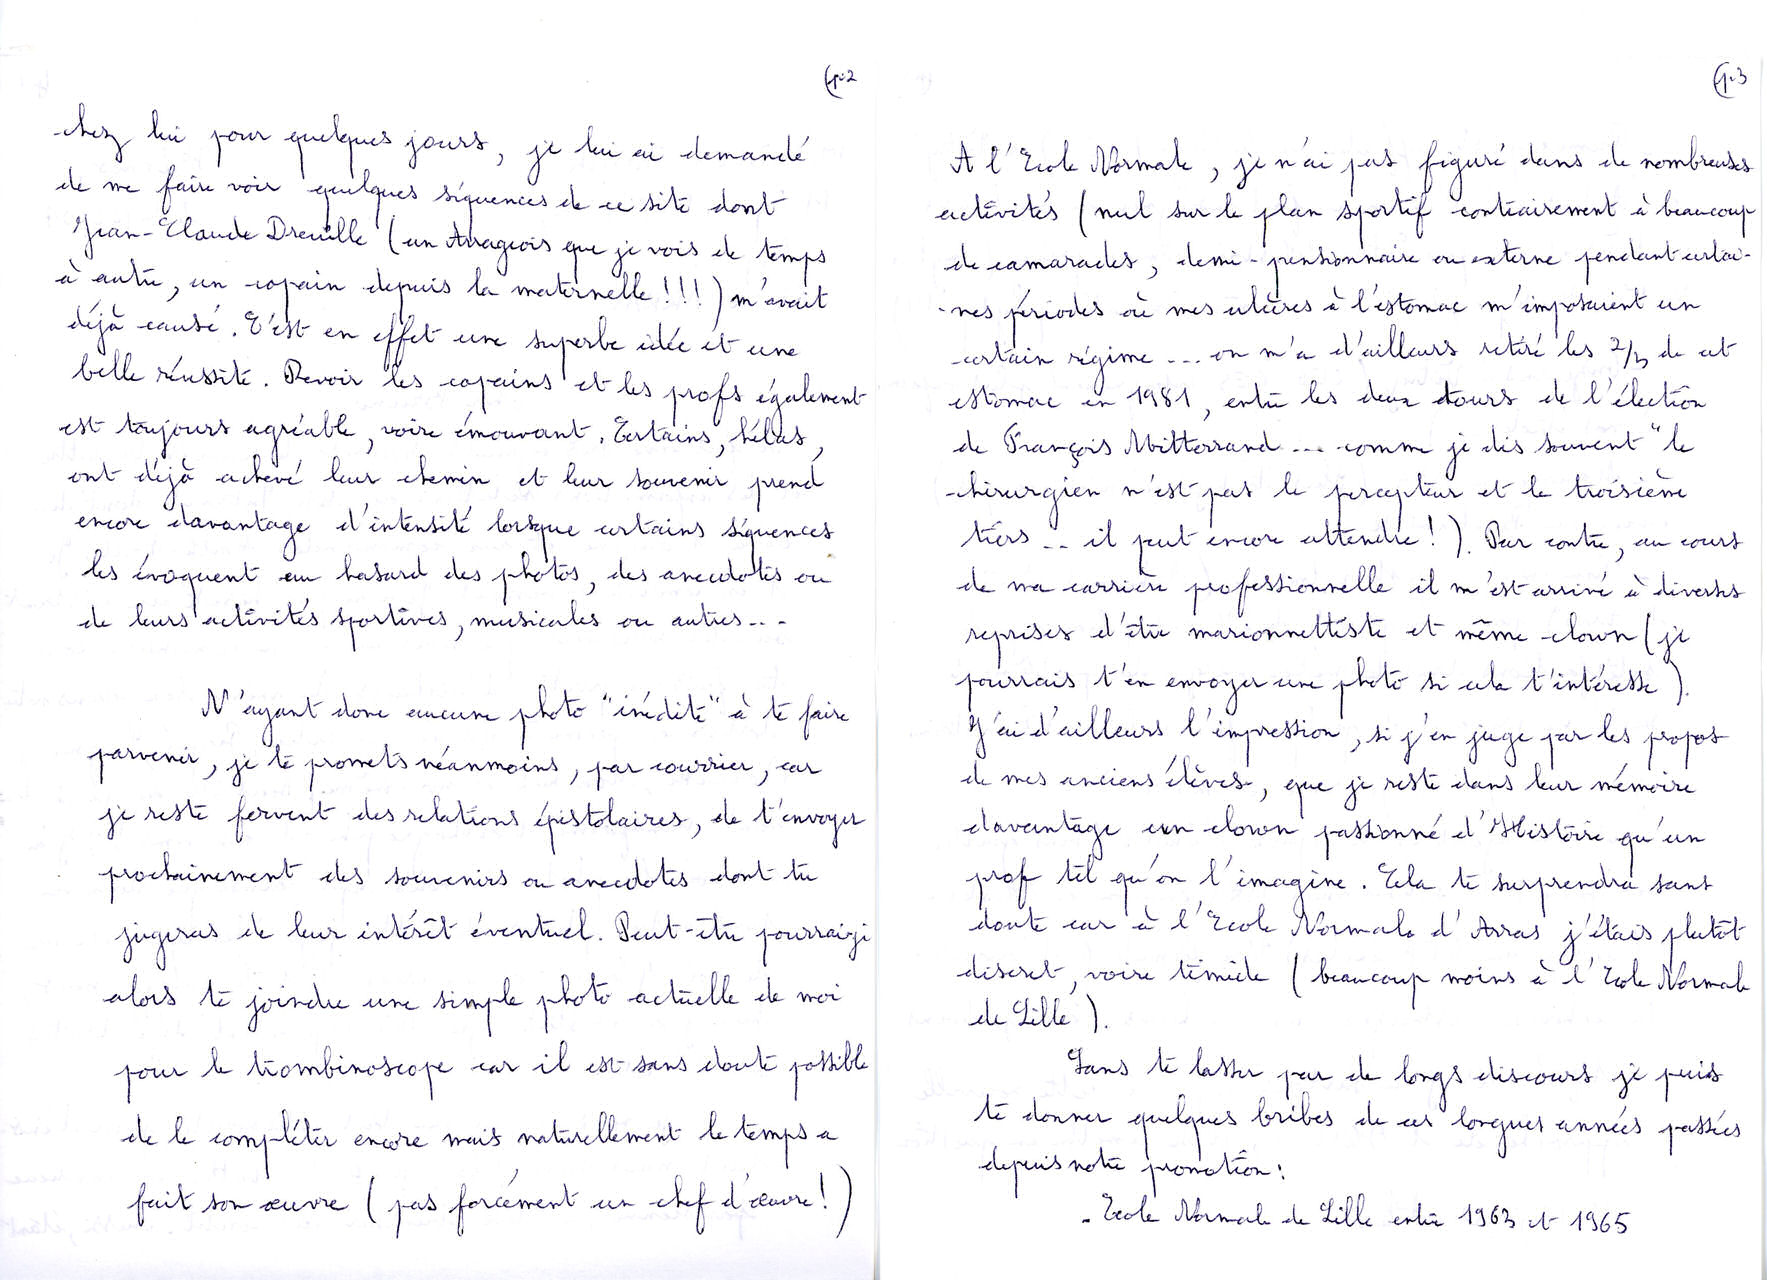 (p.2
chez lui pour quelques jours, je lui ai demandé
de me faire voir quelques séquences de ce site dont
Jean-Claude Dreuille (un Arrageois que je vois de temps
à autre, un copain depuis la maternelle!!!) m'avait
déjà causé. C'est en effet une superbe idée et une
belle réussite. Revoir les copains et les profs également
est toujours agréable, voire émouvant. Certains, hélas,
ont déjà achevé leur chemin et leur souvenir prend
encore davantage d'intensité lorsque certains séquences
les évoquent au hasard des photos, des anecdotes ou
de leurs activités sportives, musicales ou autres...
N'ayant donc aucune photo "inédite" à te faire
parvenir, je te promets néanmoins, par courrier, car
je reste fervent des relations épistolaires, de t'envoyer
prochainement des souvenirs ou anecdotes dont tu
jugeras de leur intérêt éventuel. Peut-être pourrai-je
alors te joindre une simple photo actuelle de moi
pour le trombinoscope car il est sans doute possible
de le compléter encore mais naturellement le temps a
fait son œuvre (pas forcément un chef d'œuvre!)
(p.3
A l'Ecole Normale, je n'ai pas figuré dans de nombreuses
activités (nul sur le plan sportif contrairement à beaucoup
de camarades, demi-pensionnaire ou externe pendant certai-
-nes périodes où mes ulcères à l'estomac m'imposaient un
certain régime... on m'a d'ailleurs retiré les 2/3 de cet
estomac en 1981, entre les deux tours de l'élection
de François Mitterrand... comme je dis souvent "le
chirurgien n'est pas le percepteur et le troisième
tiers.. il peut encore attendre!). Par contre, au cours
de ma carrière professionnelle il m'est arrivé à diverses
reprises d'être marionnettiste et même clown (je
pourrais t'en envoyer une photo si cela t'intéresse).
J'ai d'ailleurs l'impression, si j'en juge par les propos
de mes anciens élèves, que je reste dans leur mémoire
davantage un clown passionné d'Histoire qu'un
prof tel qu'on l'imagine. Cela te surprendra sans
doute car à l'Ecole Normale d'Arras j'étais plutôt
discret, voire timide (beaucoup moins à l'Ecole Normale
de Lille).
Sans te lasser par de longs discours je puis
te donner quelques bribes de ces longues années passées
depuis notre promotion:
. Ecole Normale de Lille entre 1963 et 1965